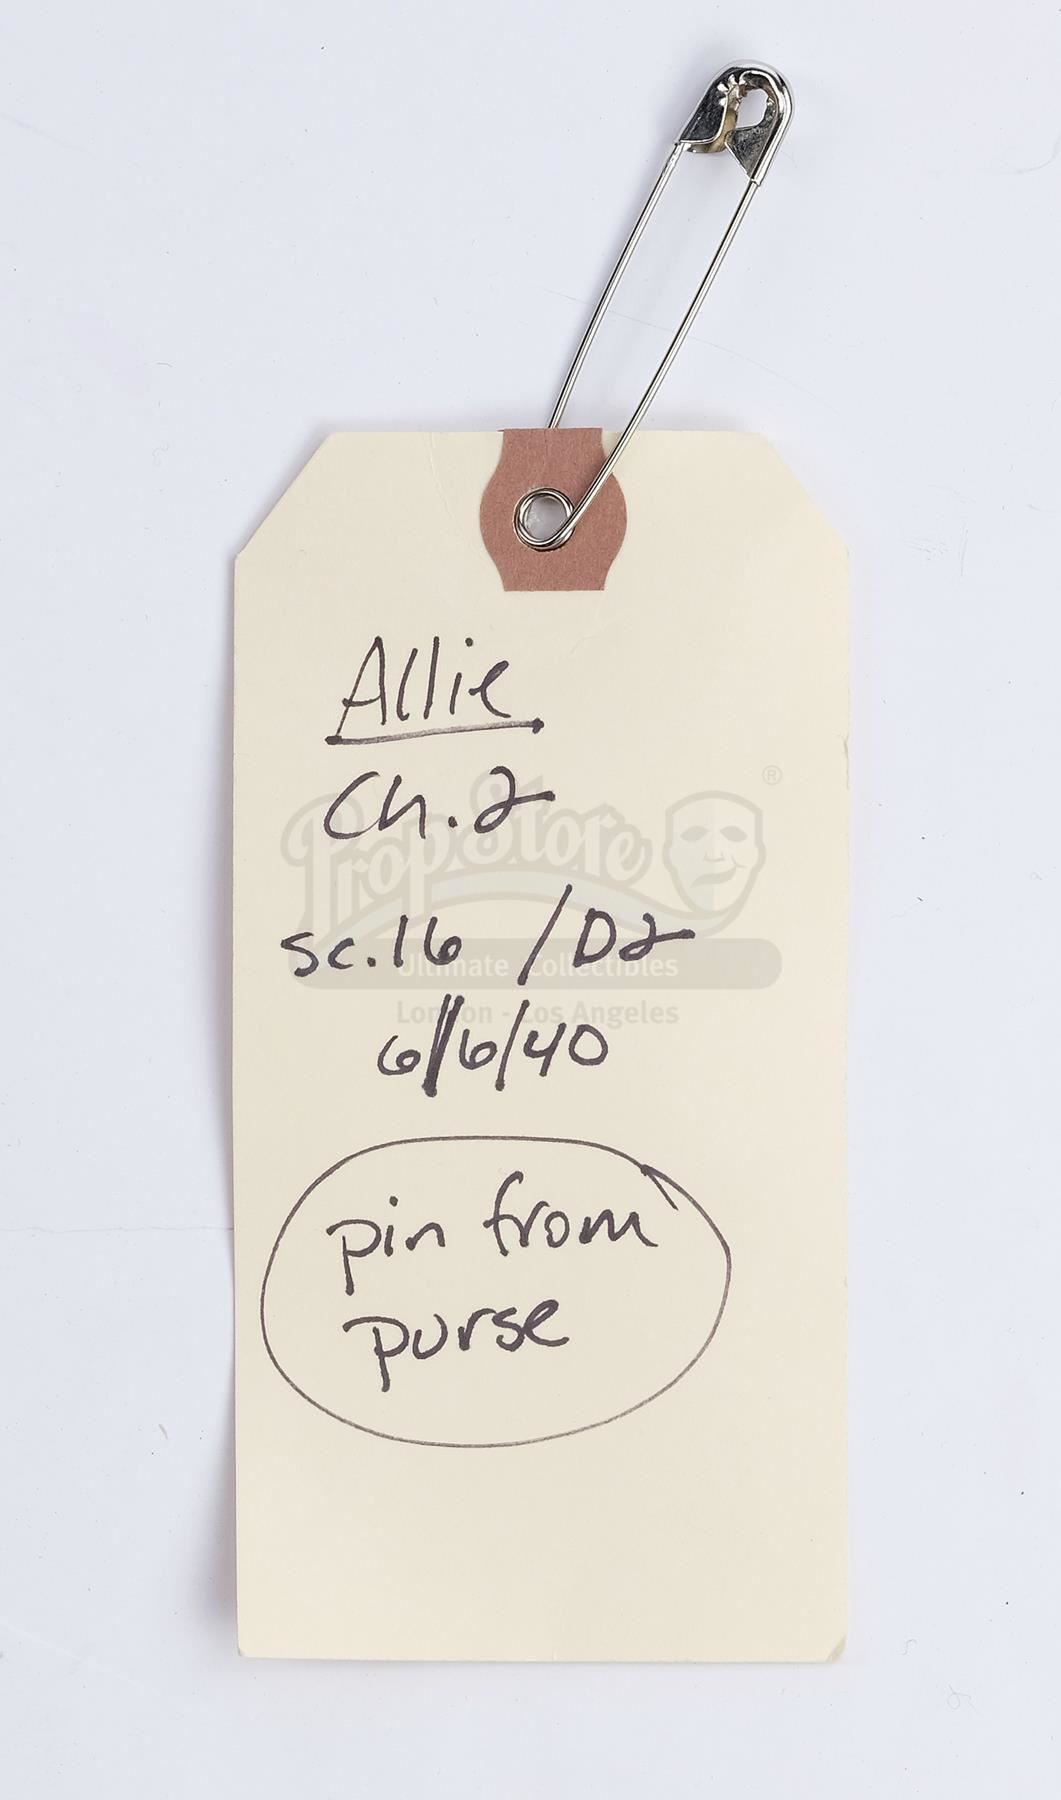 Allie
Ch. 2
sc. 16 / D2
6/6/40
pin from
purse
PropStore ®
Ultimate Collectibles
London - Los Angeles